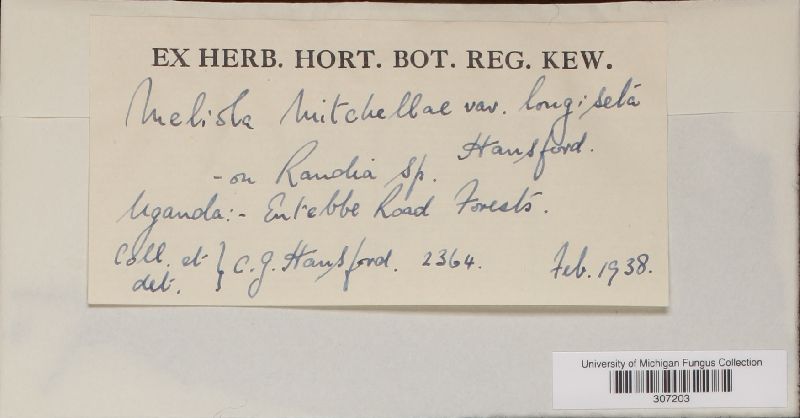 EX HERB. HORT. BOT. REG. KEW.
Meliola Mitchellae var. longiseta
Hansford.
- on Randia sp.
Uganda:- Entebbe Road Forests.
Coll. et det. } C.G. Hansford. 2364. Feb. 1938.
University of Michigan Fungus Collection
307203